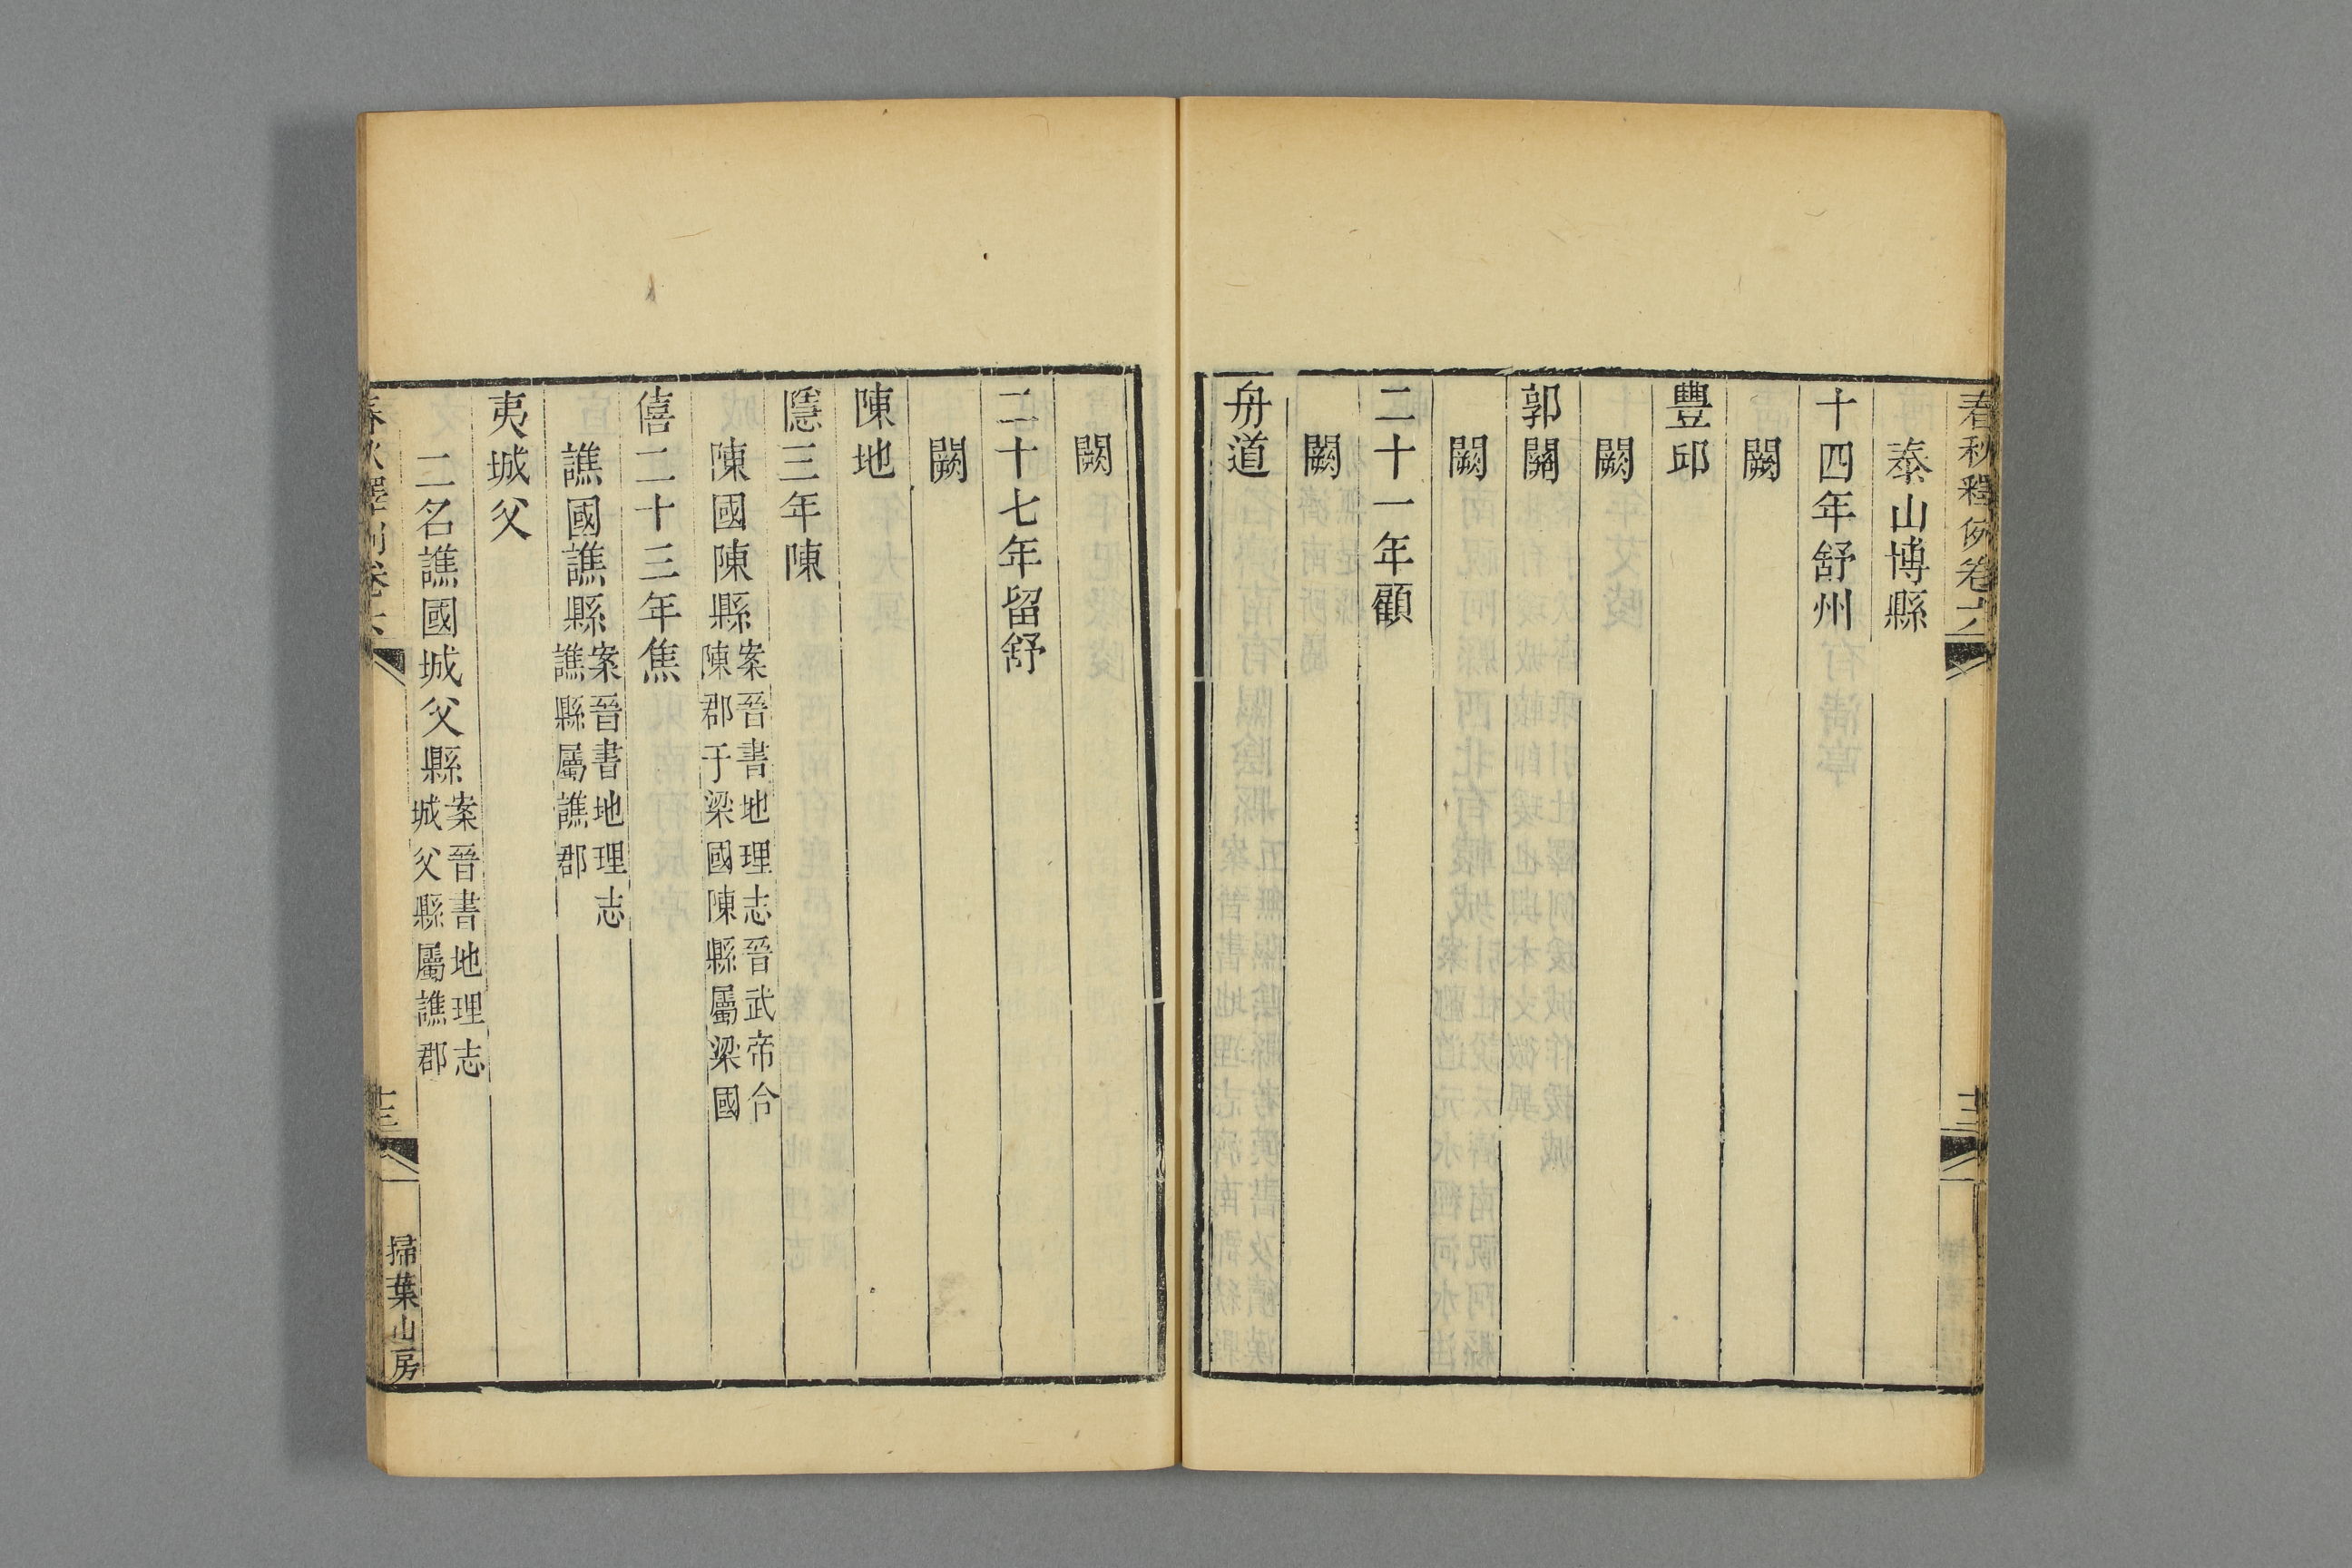 春秋釋例卷六
十二
泰山博縣
十四年舒州
闕
豐邱
闕
郭關
闕
二十一年顧
闕
舟道
闕
二十七年留舒
闕
陳地
隱三年陳
陳國陳縣案晉書地理志晉武帝合
陳郡于梁國陳縣屬梁國
僖二十三年焦
譙國譙縣案晉書地理志
譙縣屬譙郡
夷城父
二名譙國城父縣案晉書地理志
城父縣屬譙郡
春秋釋例卷六
十三
掃葉山房